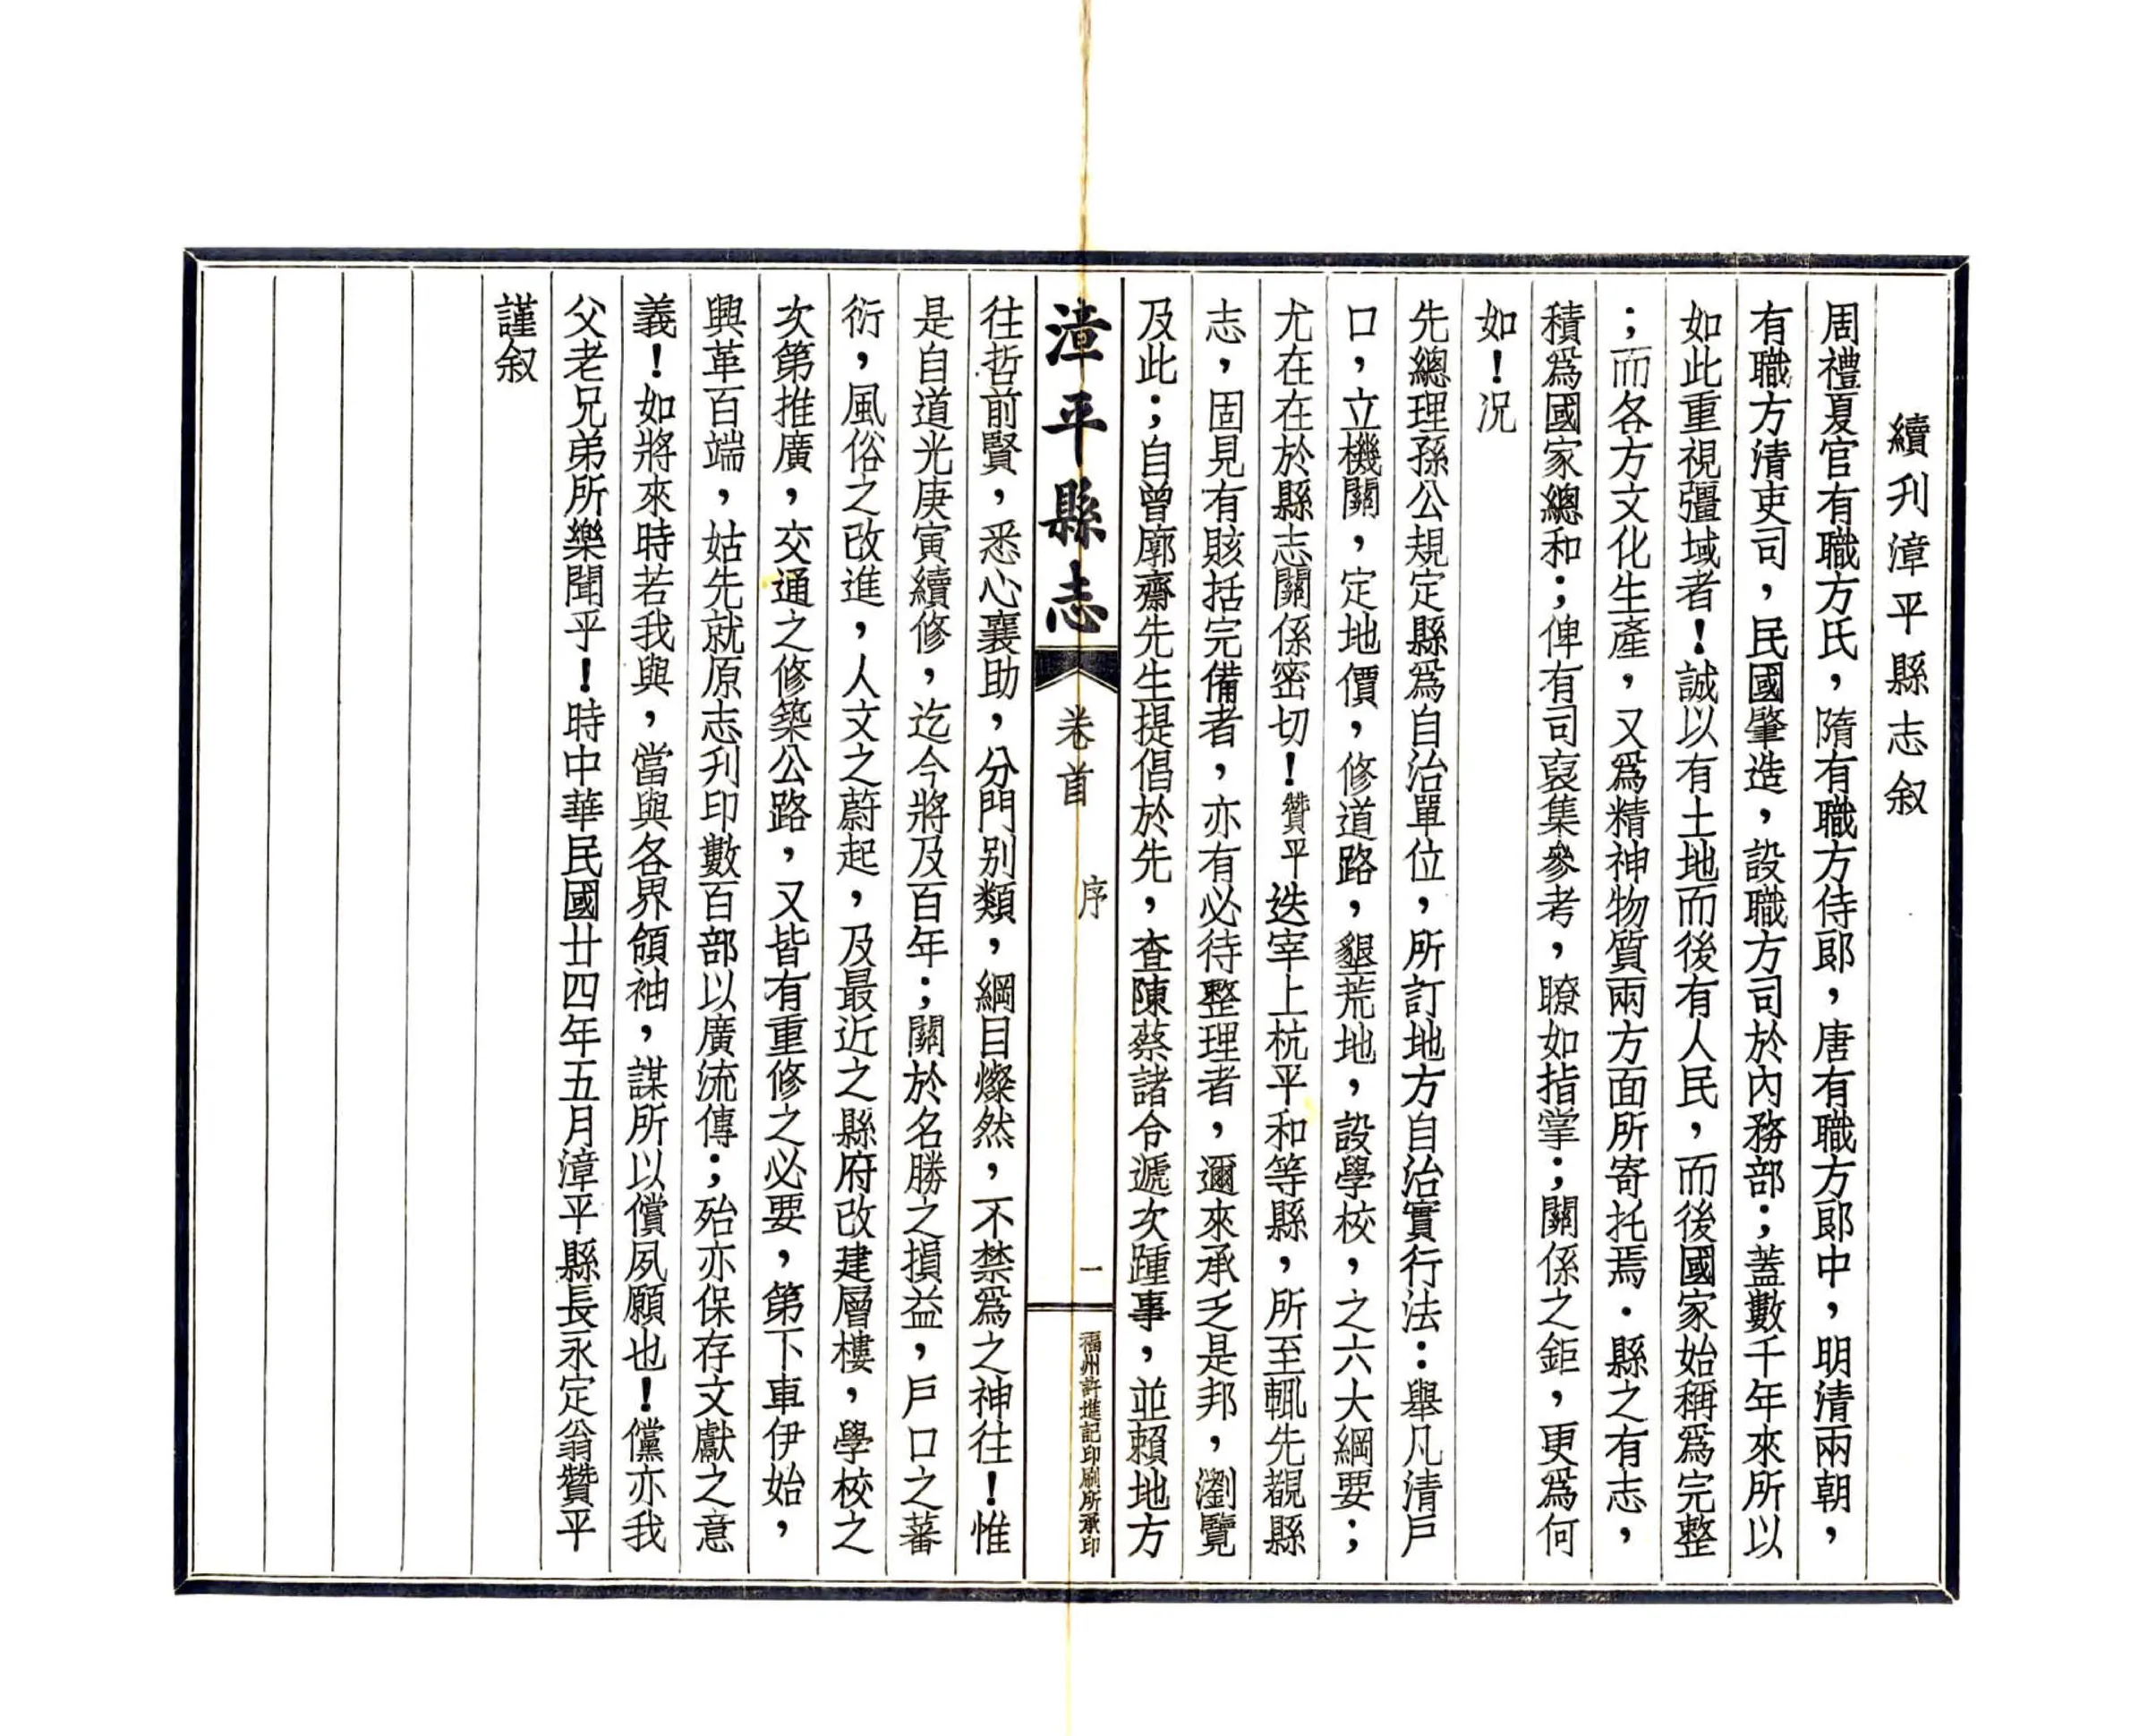 續刋漳平縣志叙
周禮夏官有職方氏，隋有職方侍郎，唐有職方郎中，明清兩朝，
有職方清吏司，民國肇造，設職方司於內務部；蓋數千年來所以
如此重視彊域者！誠以有土地而後有人民，而後國家始稱爲完整
；而各方文化生產，又爲精神物質兩方面所寄托焉．縣之有志，
積爲國家總和；俾有司裒集參考，瞭如指掌；關係之鉅，更爲何
如！况
先總理孫公規定縣爲自治單位，所訂地方自治實行法：舉凡清戶
口，立機關，定地價，修道路，墾荒地，設學校，之六大綱要；
尤在在於縣志關係密切！贊平迭宰上杭平和等縣，所至輒先覩縣
志，固見有賅括完備者，亦有必待整理者，邇來承乏是邦，瀏覽
及此；自曾廓齋先生提倡於先，查陳蔡諸令遞次踵事，並賴地方
漳平縣志
卷首
序
一
福州許進記印刷所承印
往哲前賢，悉心襄助，分門別類，綱目燦然，不禁爲之神往！惟
是自道光庚寅續修，迄今將及百年；關於名勝之損益，戶口之蕃
衍，風俗之改進，人文之蔚起，及最近之縣府改建層樓，學校之
次第推廣，交通之修築公路，又皆有重修之必要，第下車伊始，
興革百端，姑先就原志刋印數百部以廣流傳；殆亦保存文獻之意
義！如將來時若我與，當與各界領袖，謀所以償夙願也！儻亦我
父老兄弟所樂聞乎！時中華民國廿四年五月漳平縣長永定翁贊平
謹叙